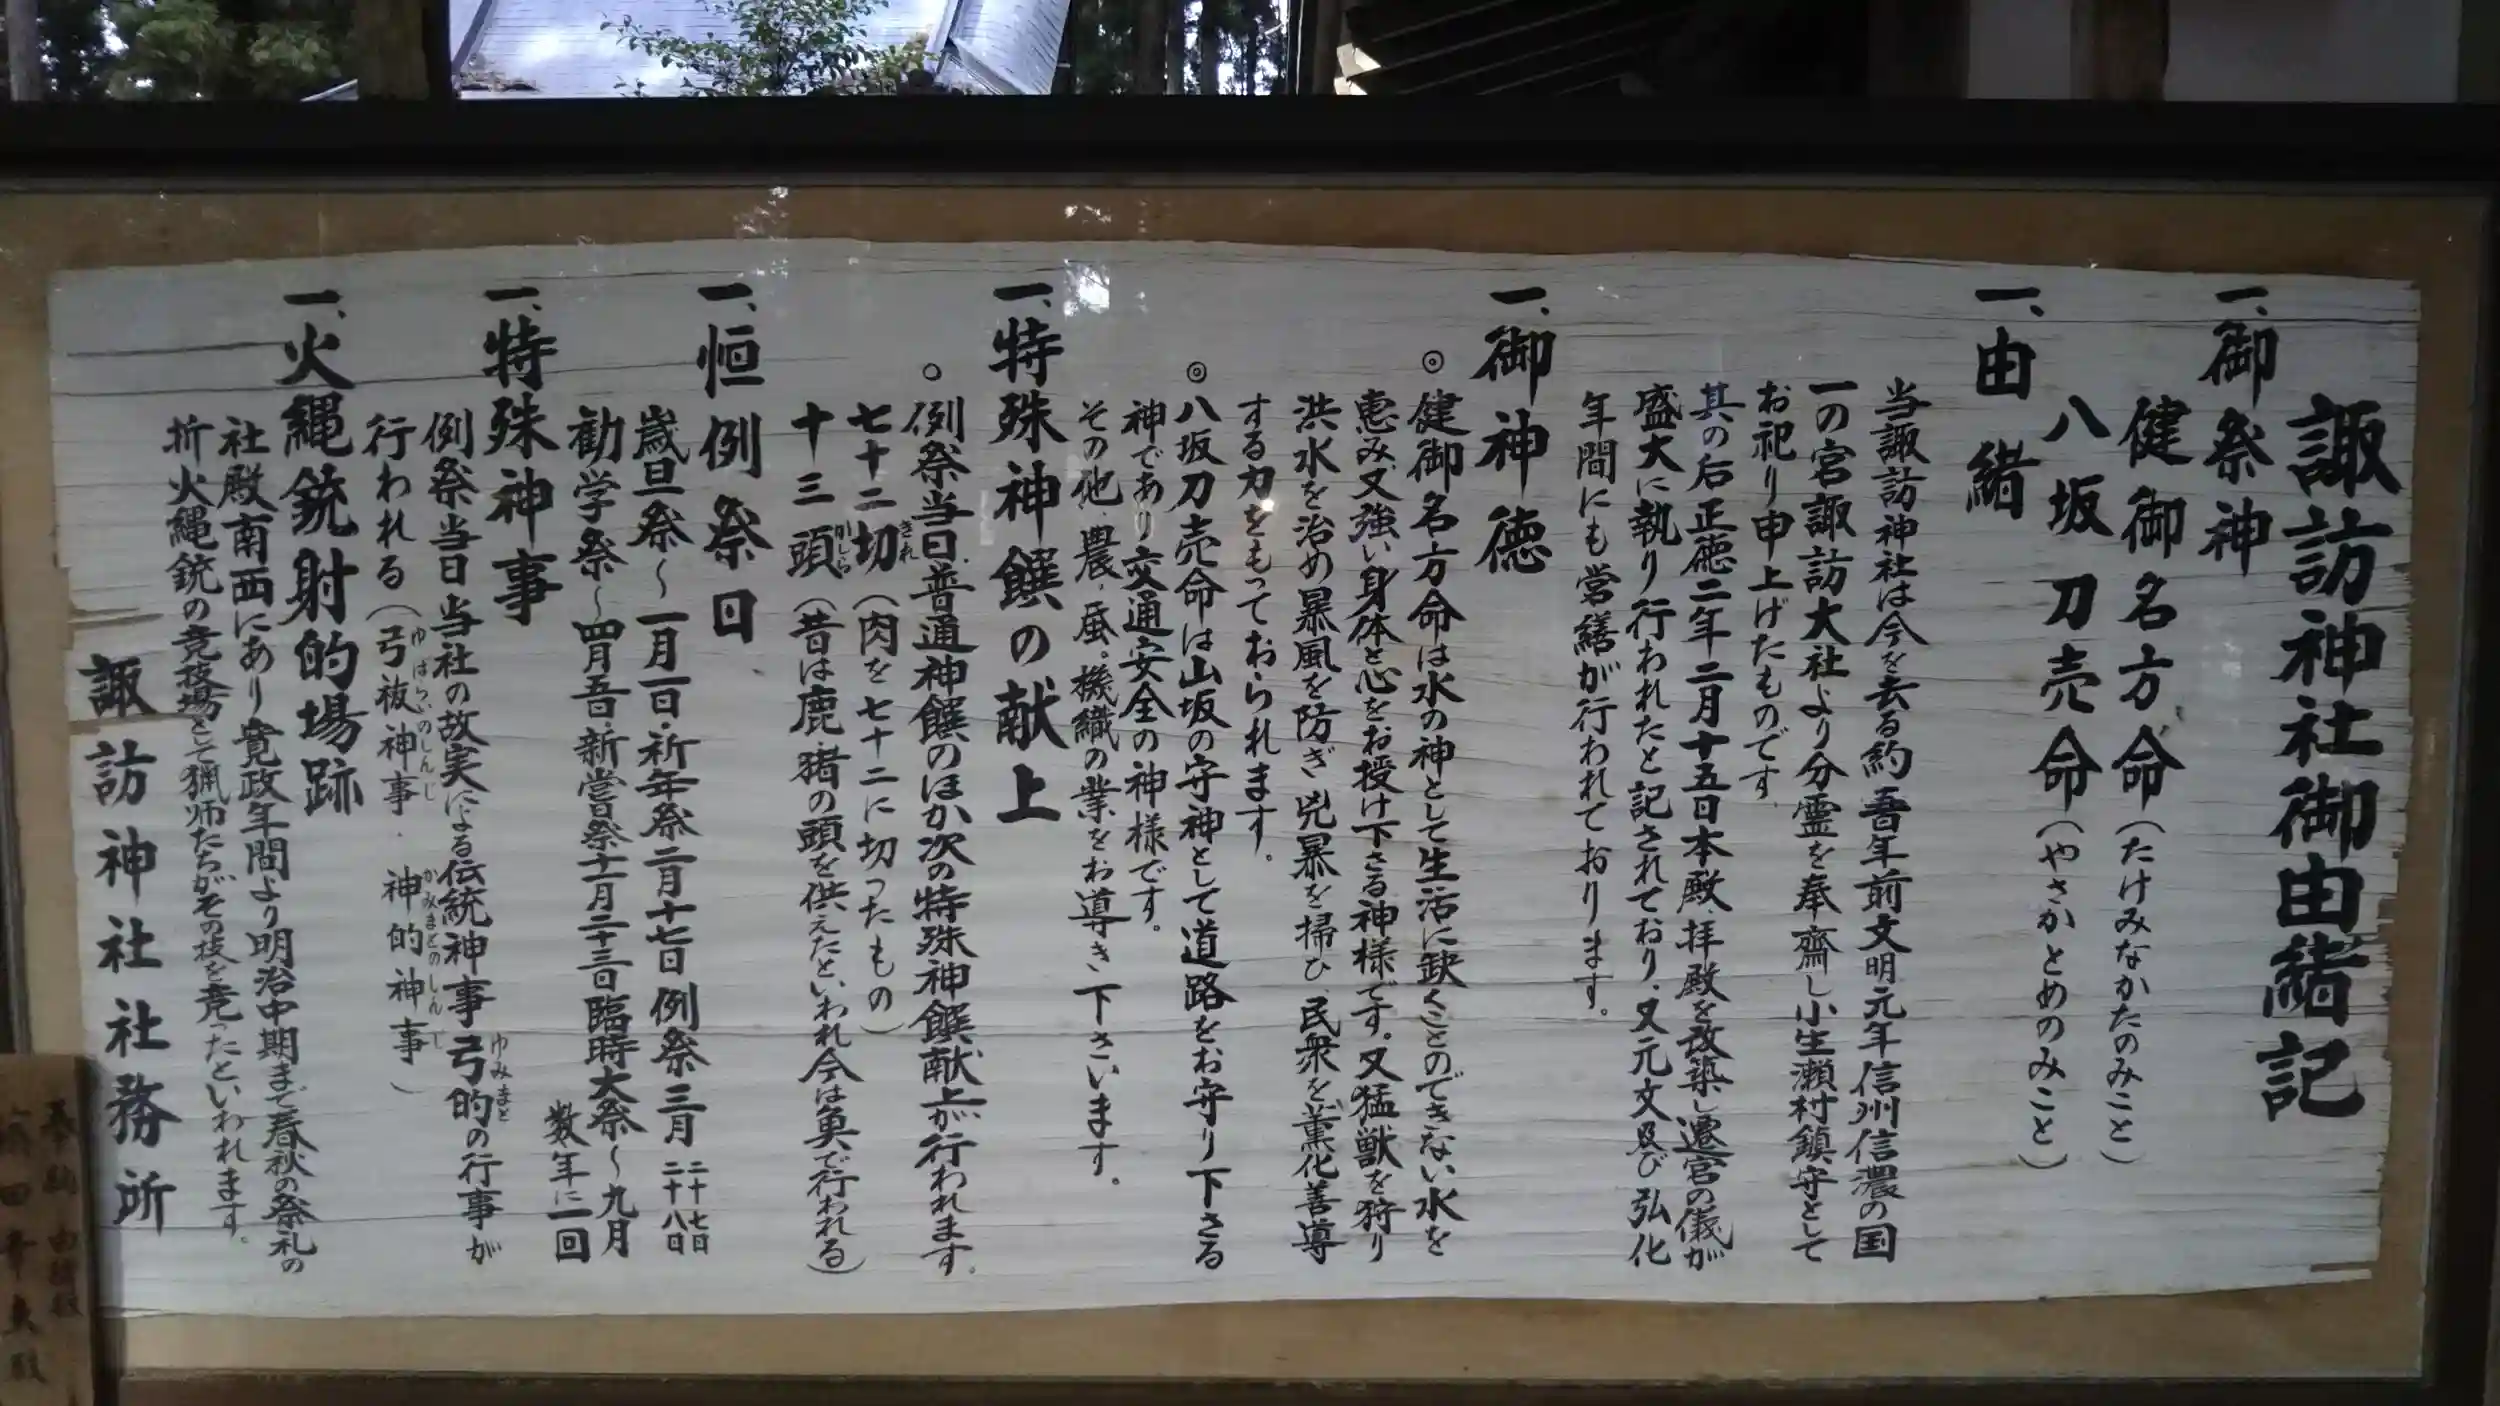 諏訪神社御由緒記
一、御祭神
健御名方命（たけみなかたのみこと）
八坂刀売命（やさかとめのみこと）
一、由緒
当諏訪神社は今を去る約五百年前文明元年信州信濃の国
一の宮諏訪大社より分霊を奉齋し小生瀬村鎮守として
お祀り申上げたものです
其の后正徳二年二月十五日本殿、拝殿を改築し遷宮の儀が
盛大に執り行われたと記されており、又元文及び弘化
年間にも営繕が行われております。
一、御神徳
◎健御名方命は水の神として生活に欠くことのできない水を
恵み又強い身体と心をお授け下さる神様です。又猛獣を狩り
洪水を治め暴風を防ぎ兇暴を掃ひ、民衆を薫化善導
する力をもっておられます。
◎八坂刀売命は山坂の守神として道路をお守り下さる
神であり交通安全の神様です。
その他、農、蚕。機織の業をお導き下さいます。
一、特殊神饌の献上
○例祭当日、普通神饌のほか次の特殊神饌献上が行われます。
七十二切きれ（肉を七十二に切ったもの）
十三頭かしら（昔は鹿、猪の頭を供えたといわれ今は魚で行われる）
一、恒例祭日、
歳旦祭〜一月一日・祈年祭二月十七日 例祭三月二十七日二十八日
勧学祭〜四月五日・新嘗祭十一月二十三日臨時大祭〜九月数年に一回
一、特殊神事
例祭当日 当社の故実による伝統神事 弓的ゆみまとの行事が
行われる（弓祓神事ゆはらいのしんじ・神的神事かみまとのしんじ）
一、火縄銃射的場跡
社殿南西にあり寛政年間より明治中期まで春秋の祭礼の
折火縄銃の競技場として猟師たちがその技を競ったといわれます。
諏訪神社社務所
奉納 由緒板